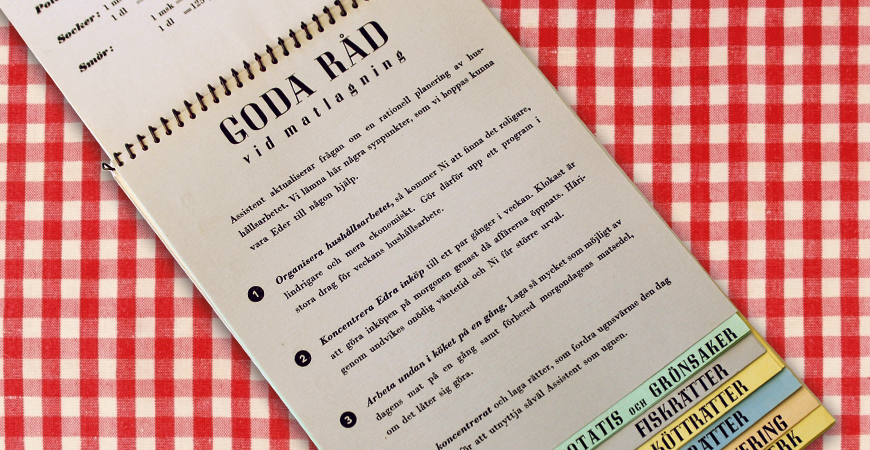 Socker: 1 msk
1 dl =125
Smör:
GODA RÅD
vid matlagning
Assistent aktualiserar frågan om en rationell planering av hus-
hållsarbetet. Vi lämna här några synpunkter, som vi hoppas kunna
vara Eder till någon hjälp.
1 Organisera hushållsarbetet, så kommer Ni att finna det roligare,
lindrigare och mera ekonomiskt. Gör därför upp ett program i
stora drag för veckans hushållsarbete.
2 Koncentrera Edra inköp till ett par gånger i veckan. Klokast är
att göra inköpen på morgonen genast då affärerna öppnats. Häri-
genom undvikes onödig väntetid och Ni får större urval.
3 Arbeta undan i köket på en gång. Laga så mycket som möjligt av
dagens mat på en gång samt förbered morgondagens matsedel,
om det låter sig göra.
koncentrerat och laga rätter, som fordra ugnsvärme den dag
för att utnyttja såväl Assistent som ugnen.
OTATIS OCH GRÖNSAKER
FISKRÄTTER
KÖTTRÄTTER
RÄTTER
VERING
ERK